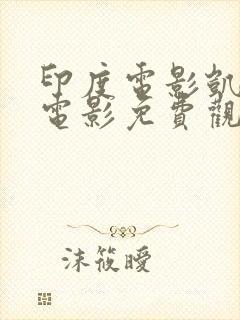 印度電影凱
電影免費觀
沫筱曖